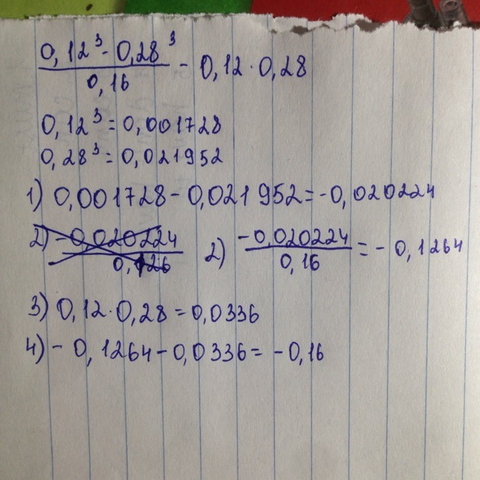 0,12³ - 0,28³ / 0,16 - 0,12 · 0,28
0,12³ = 0,001728
0,28³ = 0,021952
1) 0,001728 - 0,021952 = -0,020224
2) -0,020224 / 0,16 = -0,1264
3) 0,12 · 0,28 = 0,0336
4) -0,1264 - 0,0336 = -0,16